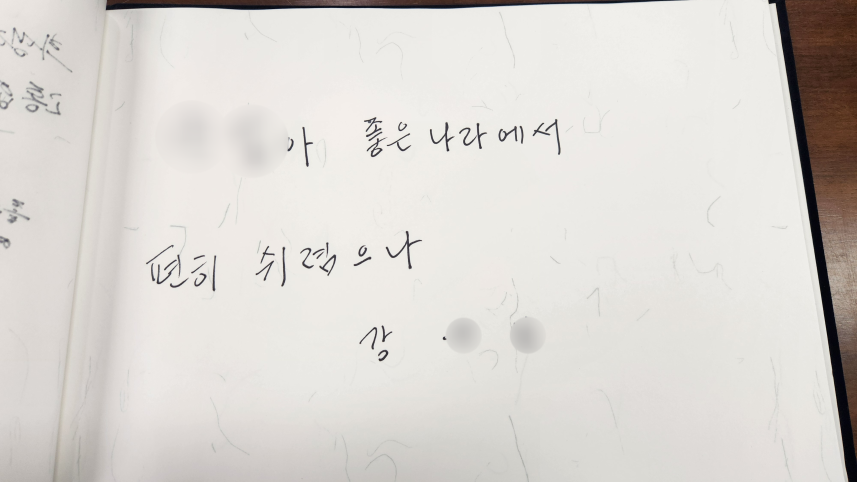 아 좋은 나라에서
편히 쉬렴으나
강